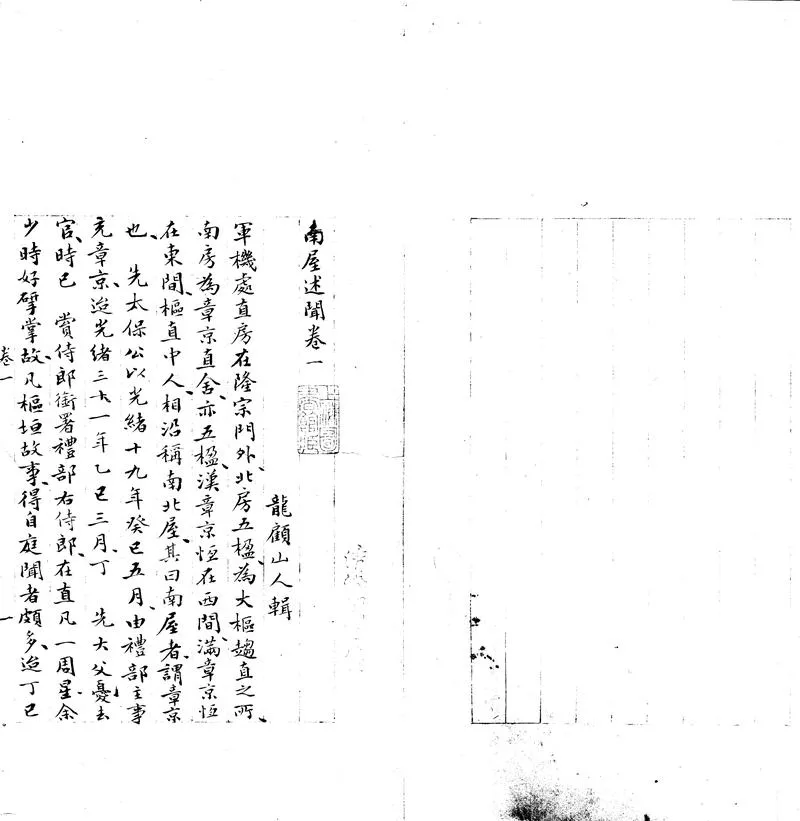 南屋述聞卷一
龍顧山人輯
軍機處直房在隆宗門外、北房五楹、為大樞趨直之所、
南房為章京直舍、亦五楹、漢章京恆在西間、滿章京恆
在東間、樞直中人、相沿稱南北屋、其曰南屋者、謂章京
也、先太保公以光緒十九年癸巳五月、由禮部主事
充章京、迨光緒三十一年乙巳三月、丁　先大父憂去
官、時已　賞侍郎銜署禮部右侍郎、在直凡一周星、余
少時好擘掌故、凡樞垣故事、得自庭聞者頗多、迨丁巳
卷一
一